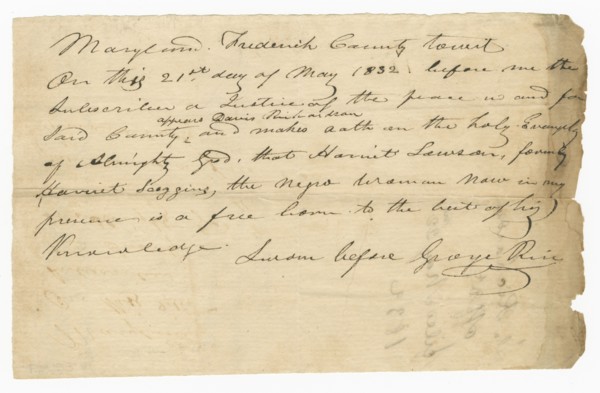 Maryland. Frederick County towit
On this 21st day of May 1832 before me the
Subscriber a Justice of the peace in and for
appears Davis Richardson
Said County, and makes oath on the holy Evangely
of Almighty God, that Harriet Lawson, formerly
Harriet Scoggins, the negro Woman Now in my
presence is a free born to the best of his
Knowledge.
Sworn before George Rice